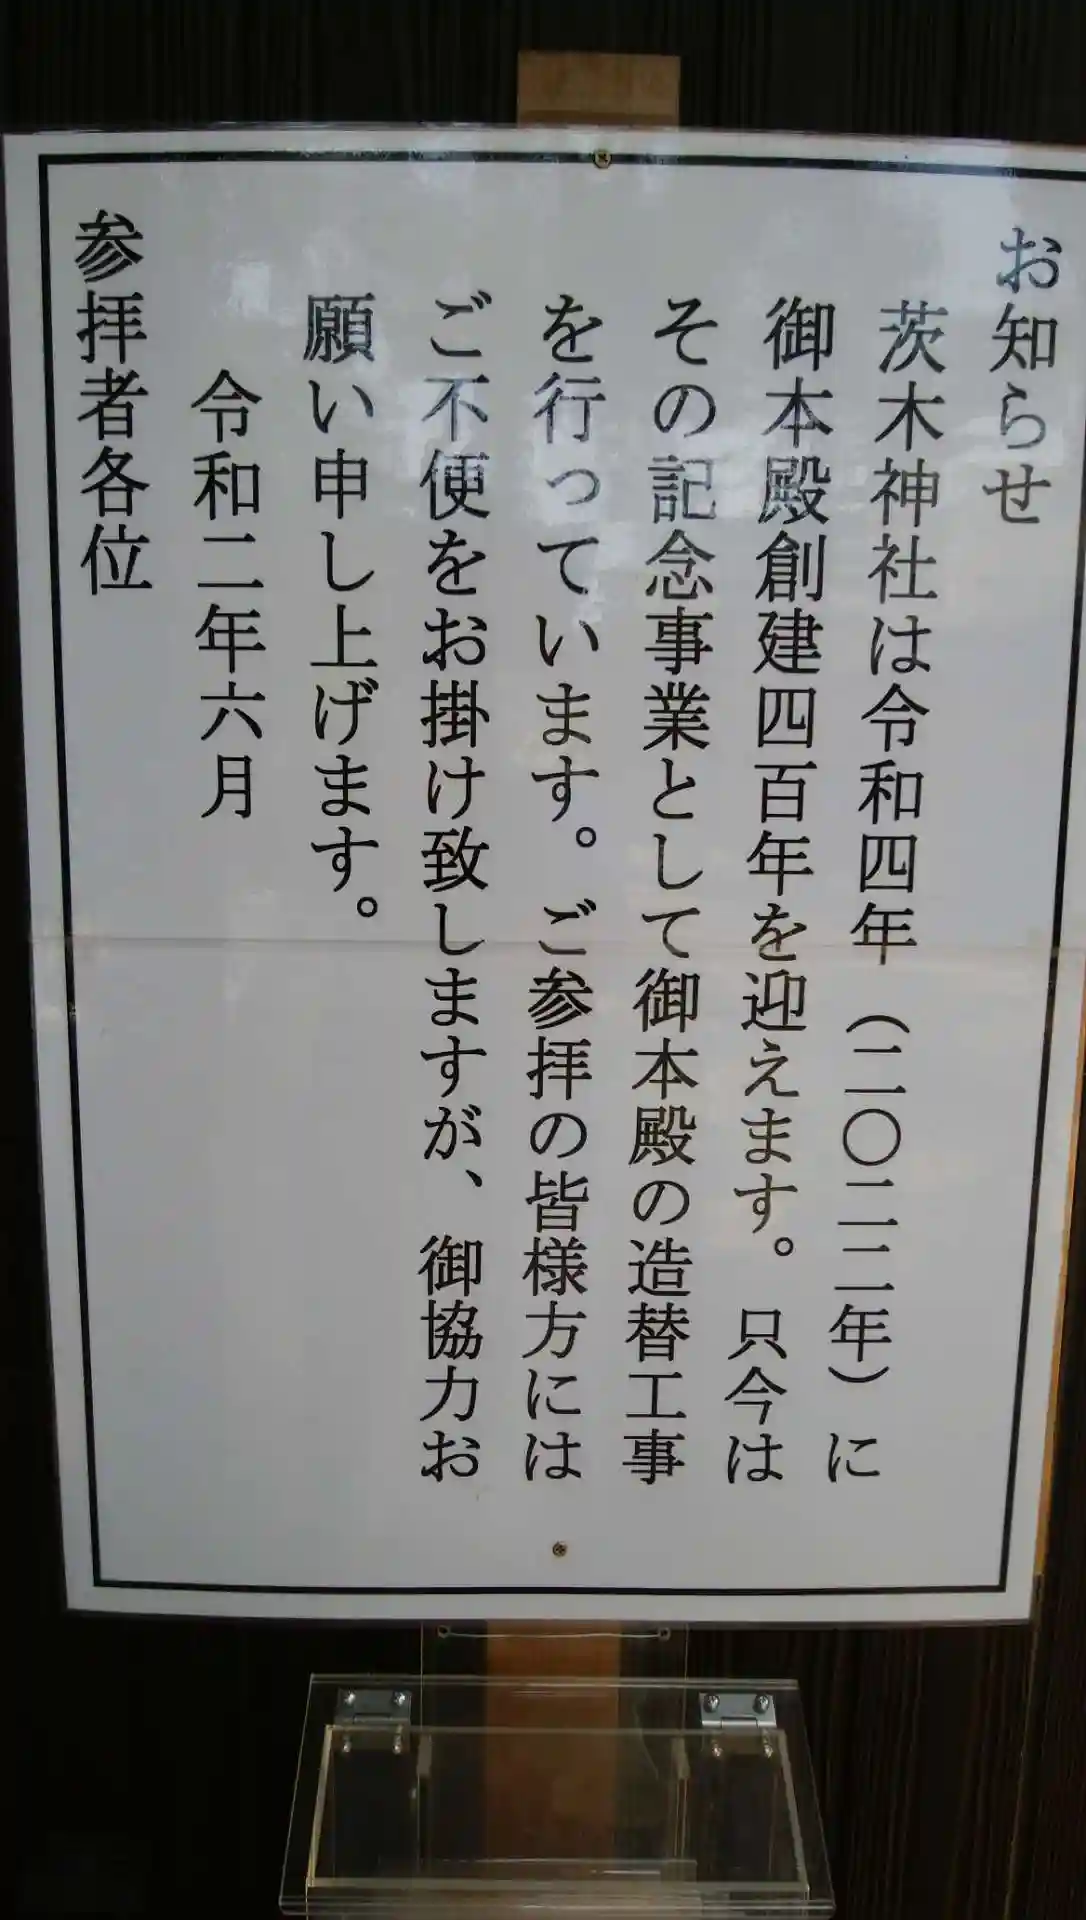 お知らせ
茨木神社は令和四年（二〇二二年）に
御本殿創建四百年を迎えます。只今は
その記念事業として御本殿の造替工事
を行っています。ご参拝の皆様方には
ご不便をお掛け致しますが、御協力お
願い申し上げます。
令和二年六月
参拝者各位